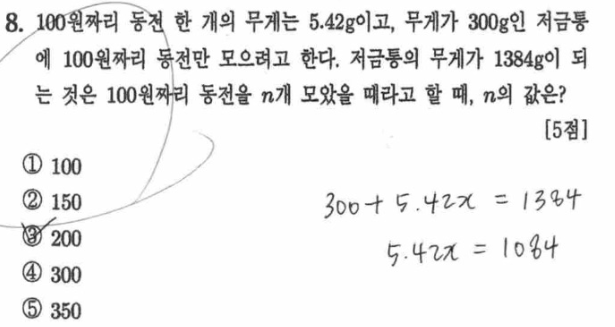 8. 100원짜리 동전 한 개의 무게는 5.42g이고, 무게가 300g인 저금통
에 100원짜리 동전만 모으려고 한다. 저금통의 무게가 1384g이 되
는 것은 100원짜리 동전을 n개 모았을 때라고 할 때, n의 값은?
[5점]
① 100
② 150
③ 200
④ 300
⑤ 350
300+ 5.42x = 1384
5.42x = 1084